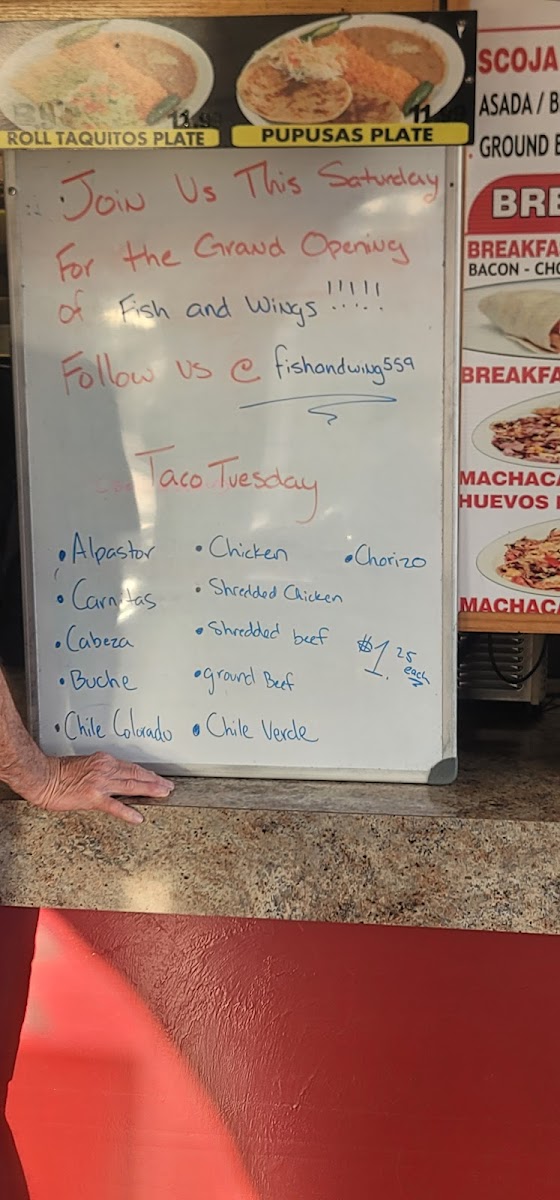 11.99
ROLL TAQUITOS PLATE
PUPUSAS PLATE
Join Us This Saturday
For the Grand Opening
of Fish and Wings !!!!!
Follow us @ fishandwing559
Taco Tuesday
• Alpastor
• Carnitas
• Cabeza
• Buche
• Chile Colorado
• Chicken
• Shredded Chicken
• Shredded beef
• ground Beef
• Chile Verde
• Chorizo
$1.25 each
SCOJA
ASADA / B
GROUND B
BRE
BREAKFA
BACON - CHO
BREAKFA
MACHACA
HUEVOS
MACHACA